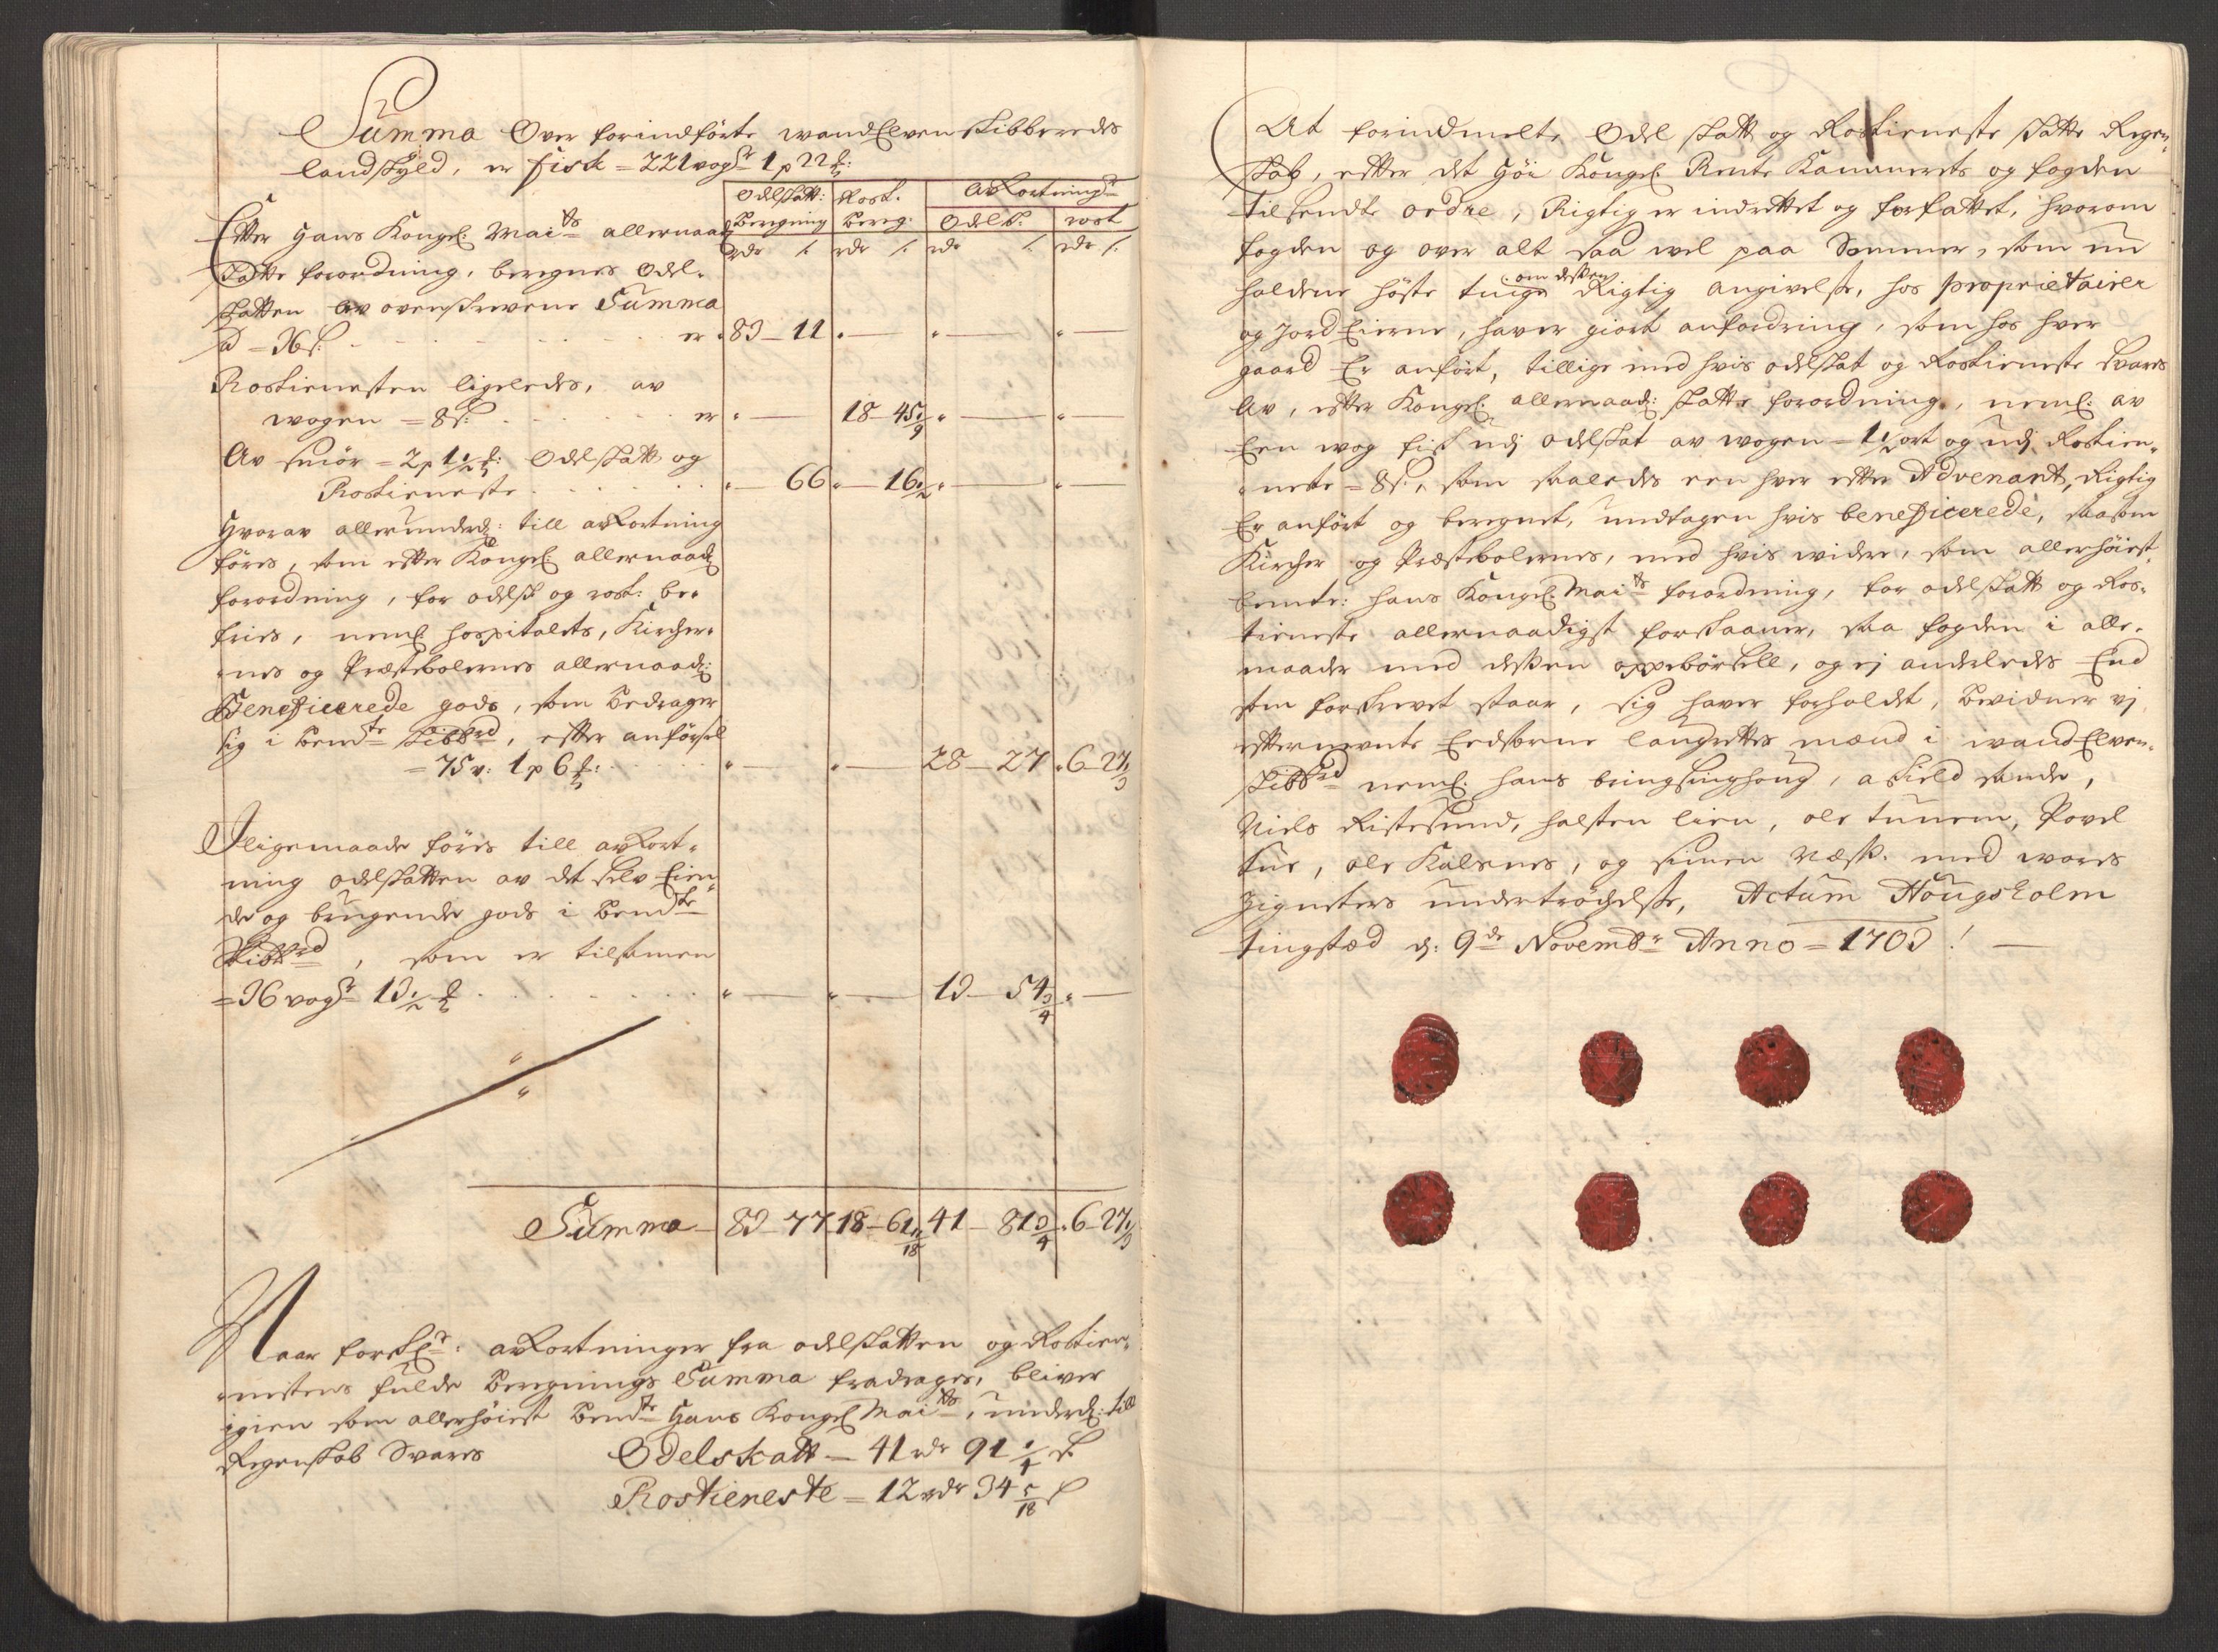 Summa Over forindførte wandElven skibberedes
landskyld, er fisk = 221 vogr 1 p 22 ℔:
Odelskatt: Rost. Avkortning
Beregning Bereg: Odelsk. rost
rdr s. rdr s. rdr s. rdr s.
Efter Hans Kongel: Mayts allernaad:
skatte forordning, beregnes Odel-
skatten av ovenskrevene Summa
a = 36 s. er 83 - 11
Rostienesten ligeledes, av
wogen = 8 s. er 18 - 45 1/9
Av smör = 2 p 1 1/2 ℔: Odelskatt og
Rostieneste 66 16 1/2
Hvorav allerunderd: till avkortning
føres, som efter Kongel: allernaad:
forordning, for odelsk og rost: be-
fries, neml: hospitalets, Kircher-
nes og Præstebolernes allernaad:
Beneficerede gods, som bedrager
sig i bemte skibbrd, efter anførsel
= 75 v: 1 p 6 ℔: 28 - 27 6 - 27 1/3
Iligemaade føres till avkort-
ning odelskatten av det selv Eien-
de og brugende gods i bemte
skibbrd, som er tilsamen
= 36 vogr 13 1/2 ℔ 13 - 54 3/4
Summa 83 - 77 18 - 61 11/18 41 - 81 3/4 6 - 27 1/3
Naar forskr: avkortninger fra odelskatten og Rostien-
nestens fulde beregnings Summa fradrages, bliver
igien som allerhøiest bemte Hans Kongel Mayts, underd: till
Regenskab Svares Odelskatt = 41 rdr 91 1/4 s
Rostieneste = 12 rdr 34 5/18 s
At forindmelte Odel skatt og Rostieneste skatte Regen-
skab, efter det høi Kongel: Rente Kammerets og fogden
tilsendte ordre, Rigtig er indrettet og forfattet, hvorom
fogden og over alt saa wel paa Sommer, som nu
holdene høste tinge om desken Rigtig angivelse, hos proprietairer
og Jord Eierne, haver giort anfordring, som hos hver
gaard Er anført, tillige med hvis odelskat og Rostieneste svares
av, efter Kongel: allernaad: skatte forordning, neml: av
Een wog fisk udj odelskat av wogen = 1 1/2 ort og udj Rostien-
neste = 8 s., som saaledes een hver efter Advenant, Rigtig
Er anført og beregnet, undtagen hvis beneficerede, saasom
Kircher og Præstebolernes, med hvis widere, som allerhøiest
bemte: hans Kongel: Mayts forordning, for odelskatt og Ros-
tieneste allernaadigst forskaaner, saa fogden i alle-
maader med desken oppebørsell, og ej anderledes End
som forskrevet staar, sig haver forholdet, bevidner vj
efternevnte Eedsorne laugrettes mænd i wandElven-
skibbrd neml: hans bringsinghaug, a
Niels Ristesund, halsten lien, ole tunem, Povel
, ole Kalsnes, og simen næss. med wores
Zigneters undertrøckelse, Actum Haugsholm
tingsted d: 9de Novembr Anno = 1703!